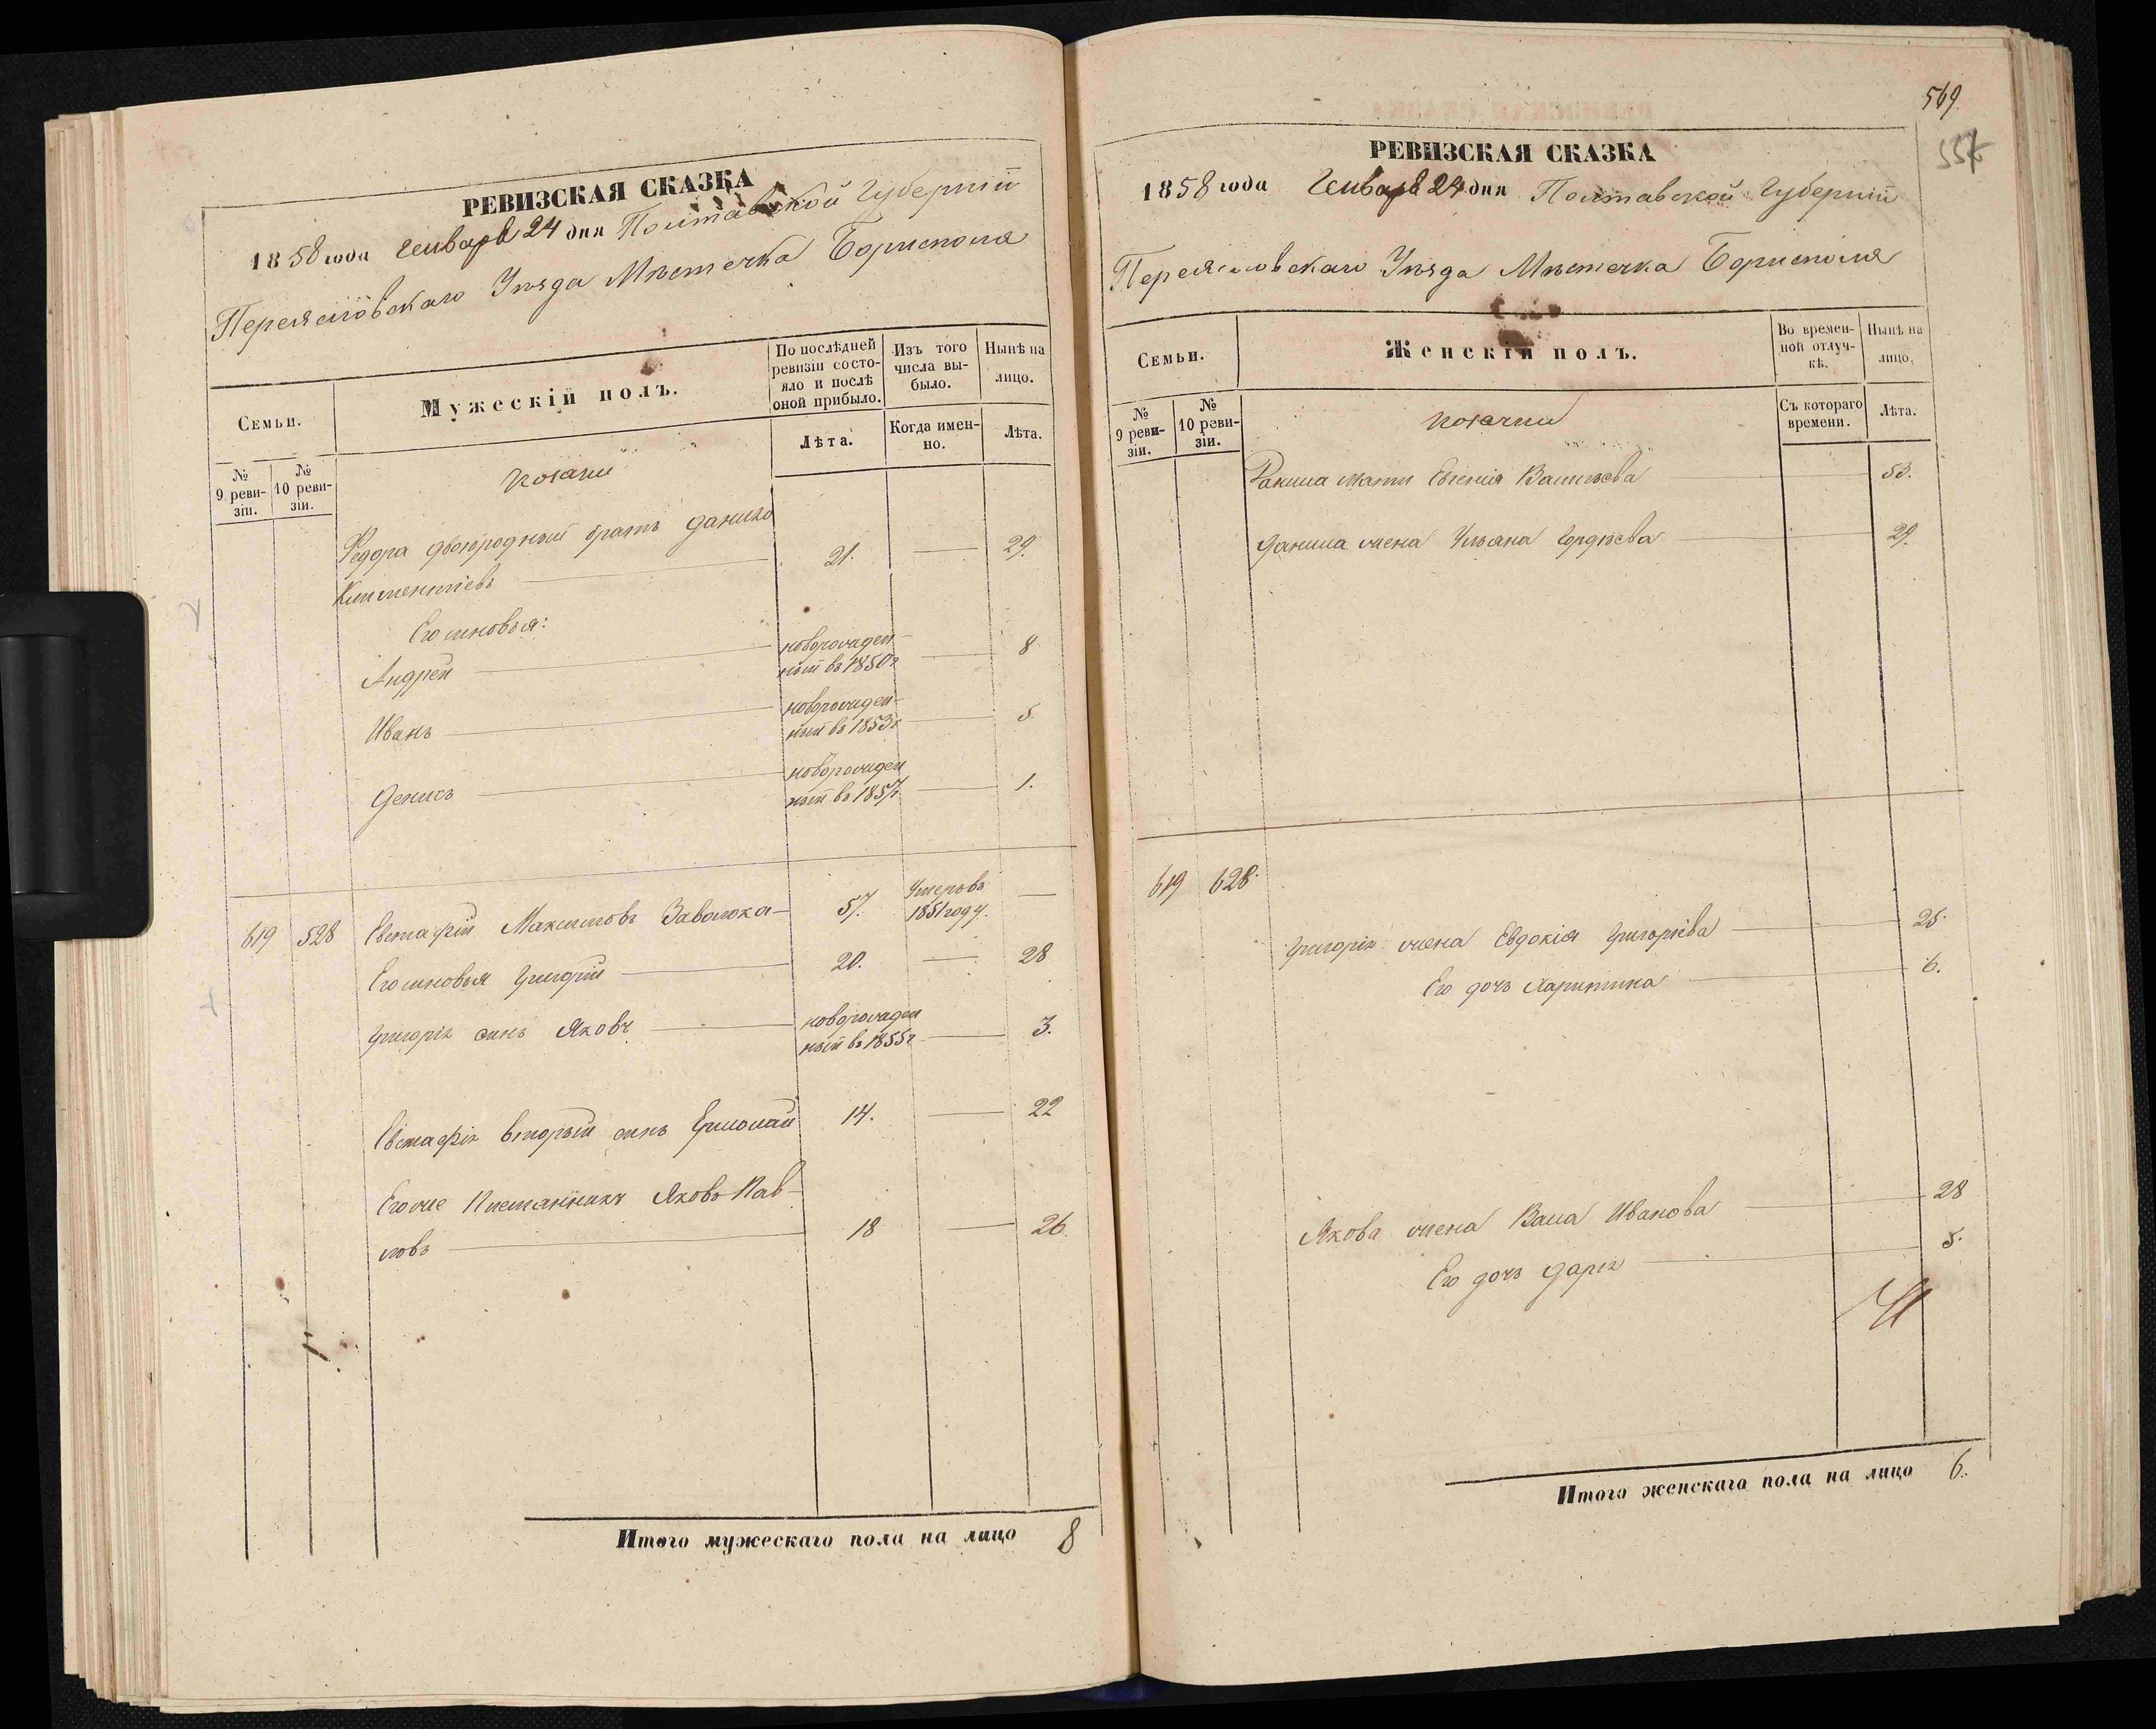 РЕВИЗСКАЯ СКАЗКА
1858 года Генваря 24 дня Полтавской Губерніи
Переясловскаго Уѣзда Мѣстечка Борисполя
Семьи.
Мужескій полъ.
По послѣдней ревизіи состояло и послѣ оной прибыло.
Изъ того числа выбыло.
Нынѣ на лицо.
№ 9 ревизіи.
№ 10 ревизіи.
Лѣта.
Когда именно.
Лѣта.
Козаки
Федора двоюродный братъ Данило
Климентіевъ 21. 29.
Его сыновья:
Андрей новорожденный въ 1850г 8
Иванъ новорожденный въ 1853г 5.
Денисъ новорожденный въ 1857г 1.
619 528 Евстафій Максимовъ Заволока 57. Умеръ въ 1851 году.
Его сыновья Григорій 20. 28
Григорія сынъ Яковъ новорожденный въ 1855г 3.
Евстафія вторый сынъ Ермолай 14. 22
Его же Племянникъ Яковъ Пав-
ловъ 18 26.
Итого мужескаго пола на лицо 8
569.
РЕВИЗСКАЯ СКАЗКА
1858 года Генваря 24 дня Полтавской Губерніи
Переясловскаго Уѣзда Мѣстечка Борисполя
Семьи.
Женскій полъ.
Во временной отлучкѣ.
Нынѣ на лицо.
№ 9 ревизіи.
№ 10 ревизіи.
Съ котораго времени.
Лѣта.
Козачки
Данила мать Евгенія Васильева 53.
Данила жена Ульяна Гордѣева 29.
619 628.
Григорія жена Евдокія Григоріева 25.
Его дочь Харитина 6.
Якова жена Васа Иванова 28
Его дочь Дарія 5.
Итого женскаго пола на лицо 6.